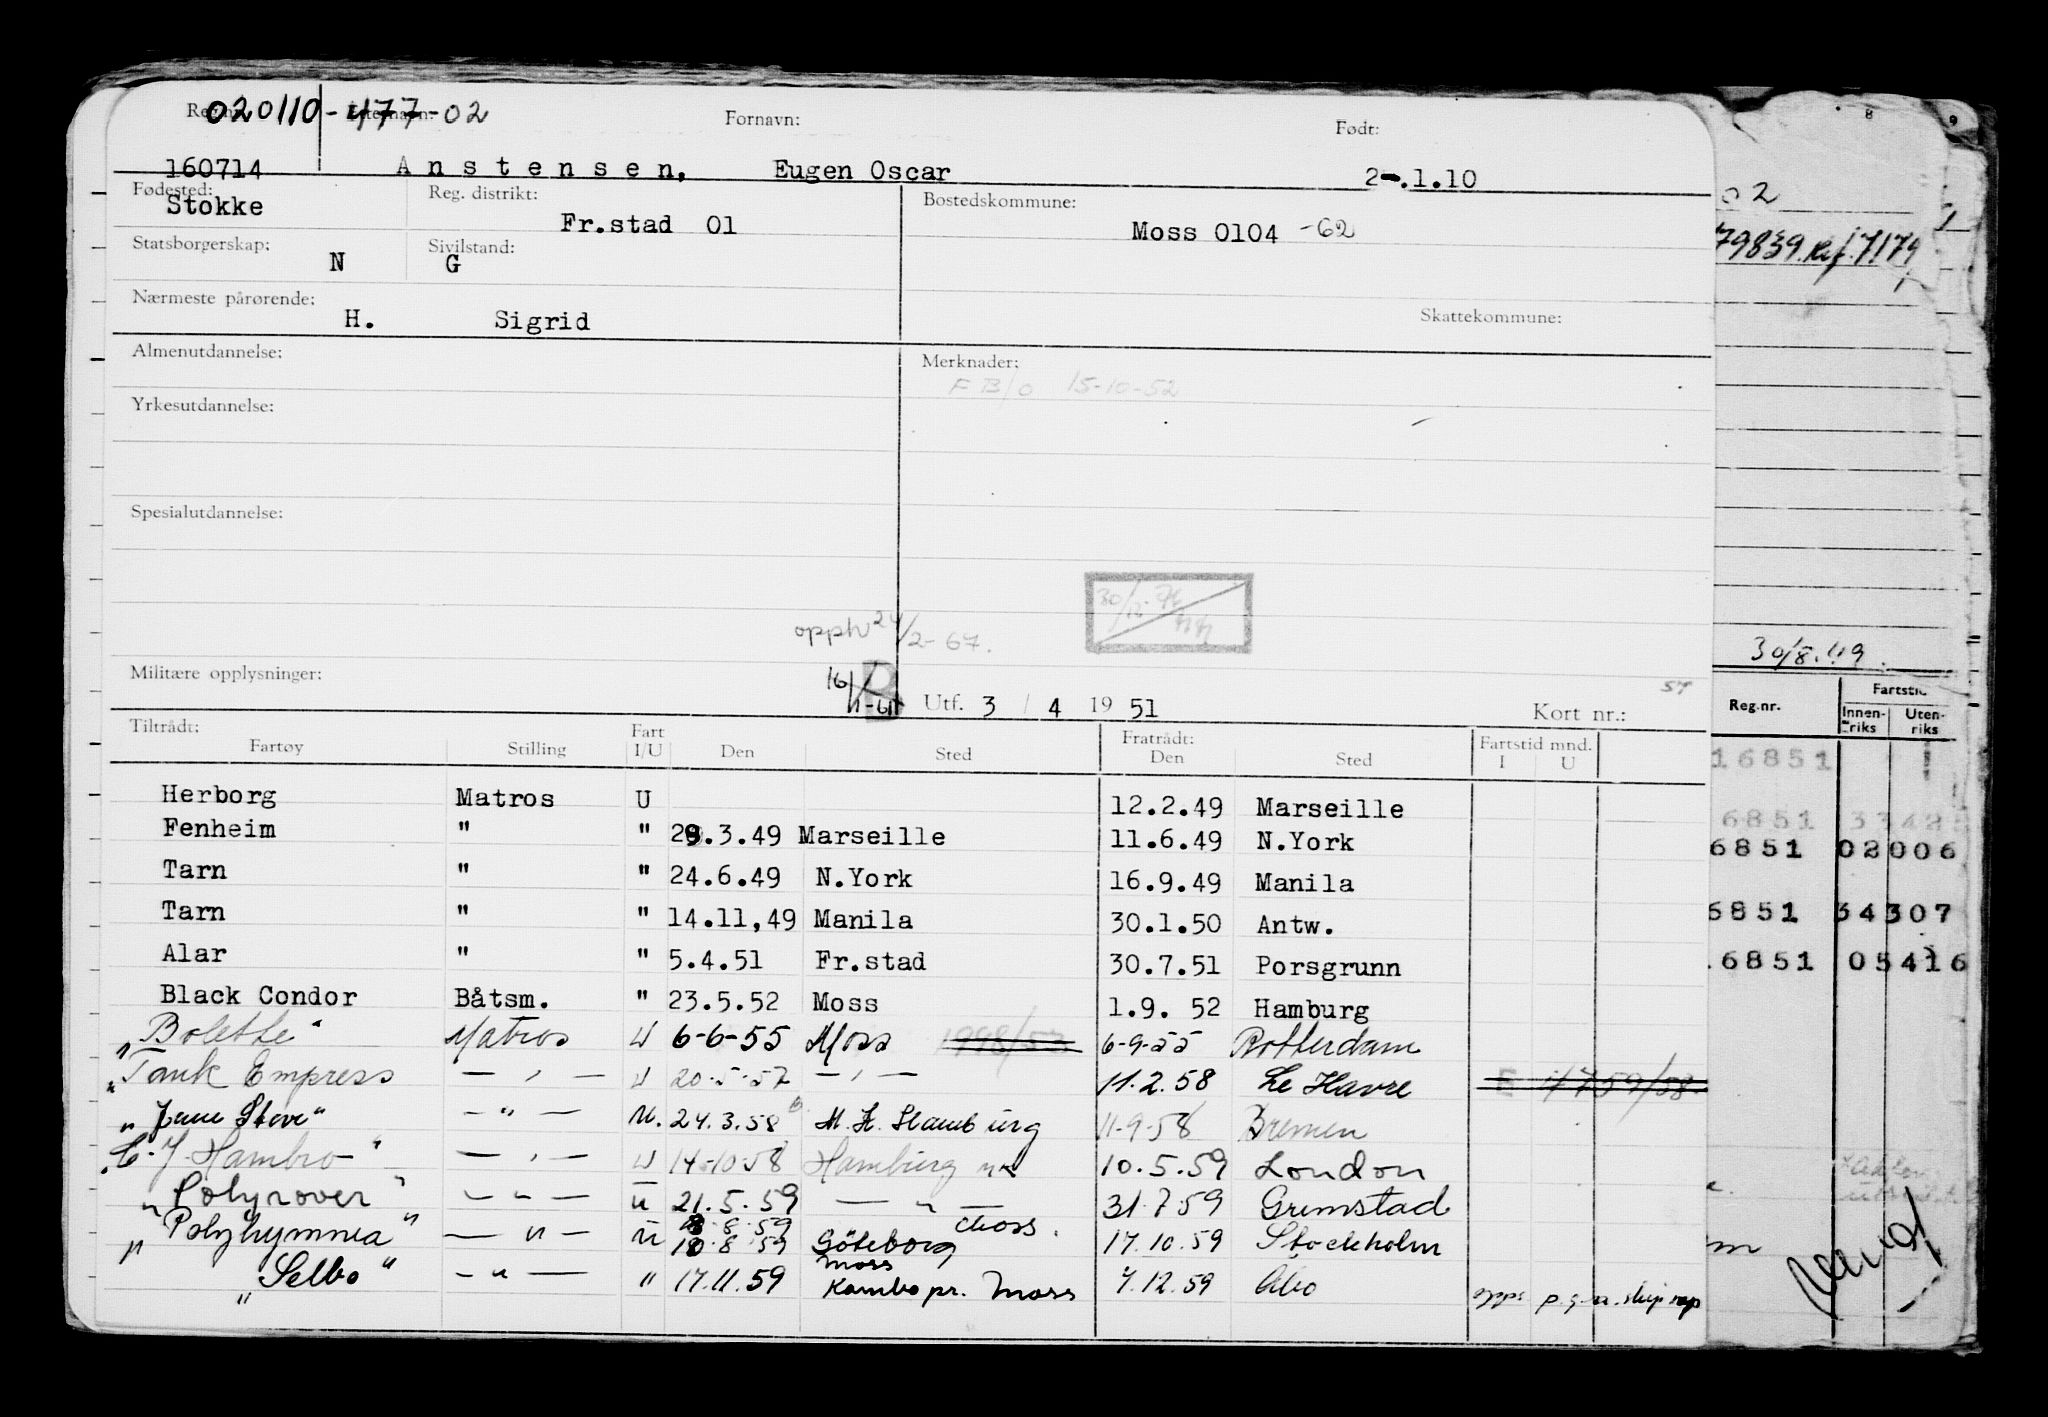 020110-477-02
Fornavn:
Født:
160714 Anstensen, Eugen Oscar 2-.1.10
Fødested: Reg. distrikt: Bostedskommune:
Stokke Fr.stad 01 Moss 0104 -62
Statsborgerskap: Sivilstand:
N G
Nærmeste pårørende: Skattekommune:
H. Sigrid
Almenutdannelse: Merknader:
F B/o 15-10-52
Yrkesutdannelse:
Spesialutdannelse:
opph 24/2-67.
Militære opplysninger:
Utf. 3 / 4 19 51 Kort nr.:
Tiltrådt: Fart Fratrådt: Fartstid mnd.
Fartøy Stilling I/U Den Sted Den Sted I U
Herborg Matros U 12.2.49 Marseille
Fenheim " " 29.3.49 Marseille 11.6.49 N.York
Tarn " " 24.6.49 N.York 16.9.49 Manila
Tarn " " 14.11,49 Manila 30.1.50 Antw.
Alar " " 5.4.51 Fr.stad 30.7.51 Porsgrunn
Black Condor Båtsm. " 23.5.52 Moss 1.9. 52 Hamburg
"Bolette" Matros U 6-6-55 Moss 6-9-55 Rotterdam
"Tank Empress — " — U 20-5-57 — " — 11.2.58 Le Havre
"Jane Stove" — " — U. 24.3.58 Hamburg 11-9-58 Bremen
"C. J. Hambro" — " — U 14-10-58 Hamburg 10.5.59 London
"Polyrover" — " — U 21.5.59 — " — 31.7.59 Grimstad
8.8.59 Moss.
"Polyhymnia" — " — U 10.8.59 Göteborg 17.10.59 Stockholm
Moss
"Selbo" — " — " 17.11.59 Kambo pr. Moss 7.12.59 Åbo
8 9
02
79839. 7179
30/8.49.
Reg.nr. Innen-riks Uten-riks
16851
6851
6851 02006
6851 34307
.6851 05416